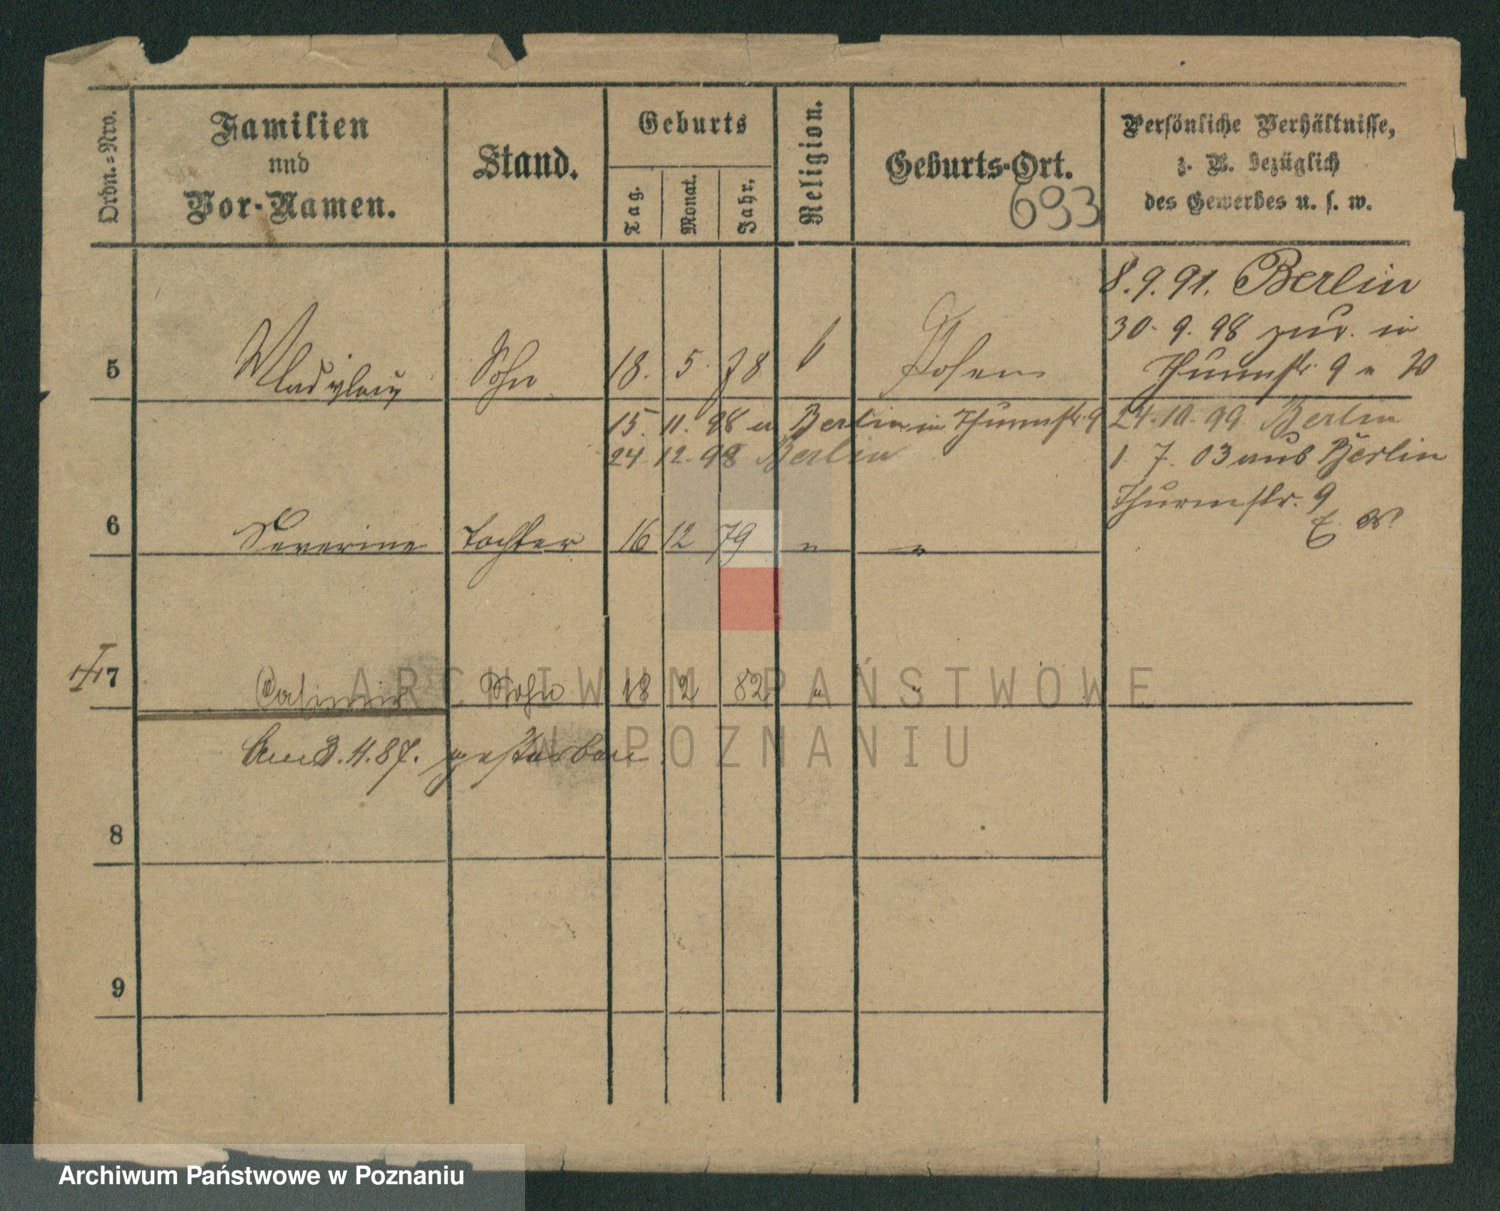 Ordn.-Nro.
Familien
und
Vor-Namen.
Stand.
Geburts
Tag.
Monat.
Jahr.
Religion.
Geburts-Ort.
693
Persönliche Verhältnisse,
z. B. bezüglich
des Gewerbes u. s. w.
8.9.91. Berlin
30. 9. 98 zur. in
Thurmstr. 9
5 Sohn 18. 5. 78 Posen
15. 11. 98 Berlin in Thurmstr. 9
24.10.99 Berlin
24 12. 98 Berlin
1 7. 03 aus Berlin
Thurmstr. 9
6 Severine Tochter 16 12 79 " "
7 Casimir Sohn 18 2 82 " "
Am 3.4.87. gestorben
8
9
ARCHIWUM PAŃSTWOWE
W POZNANIU
Archiwum Państwowe w Poznaniu